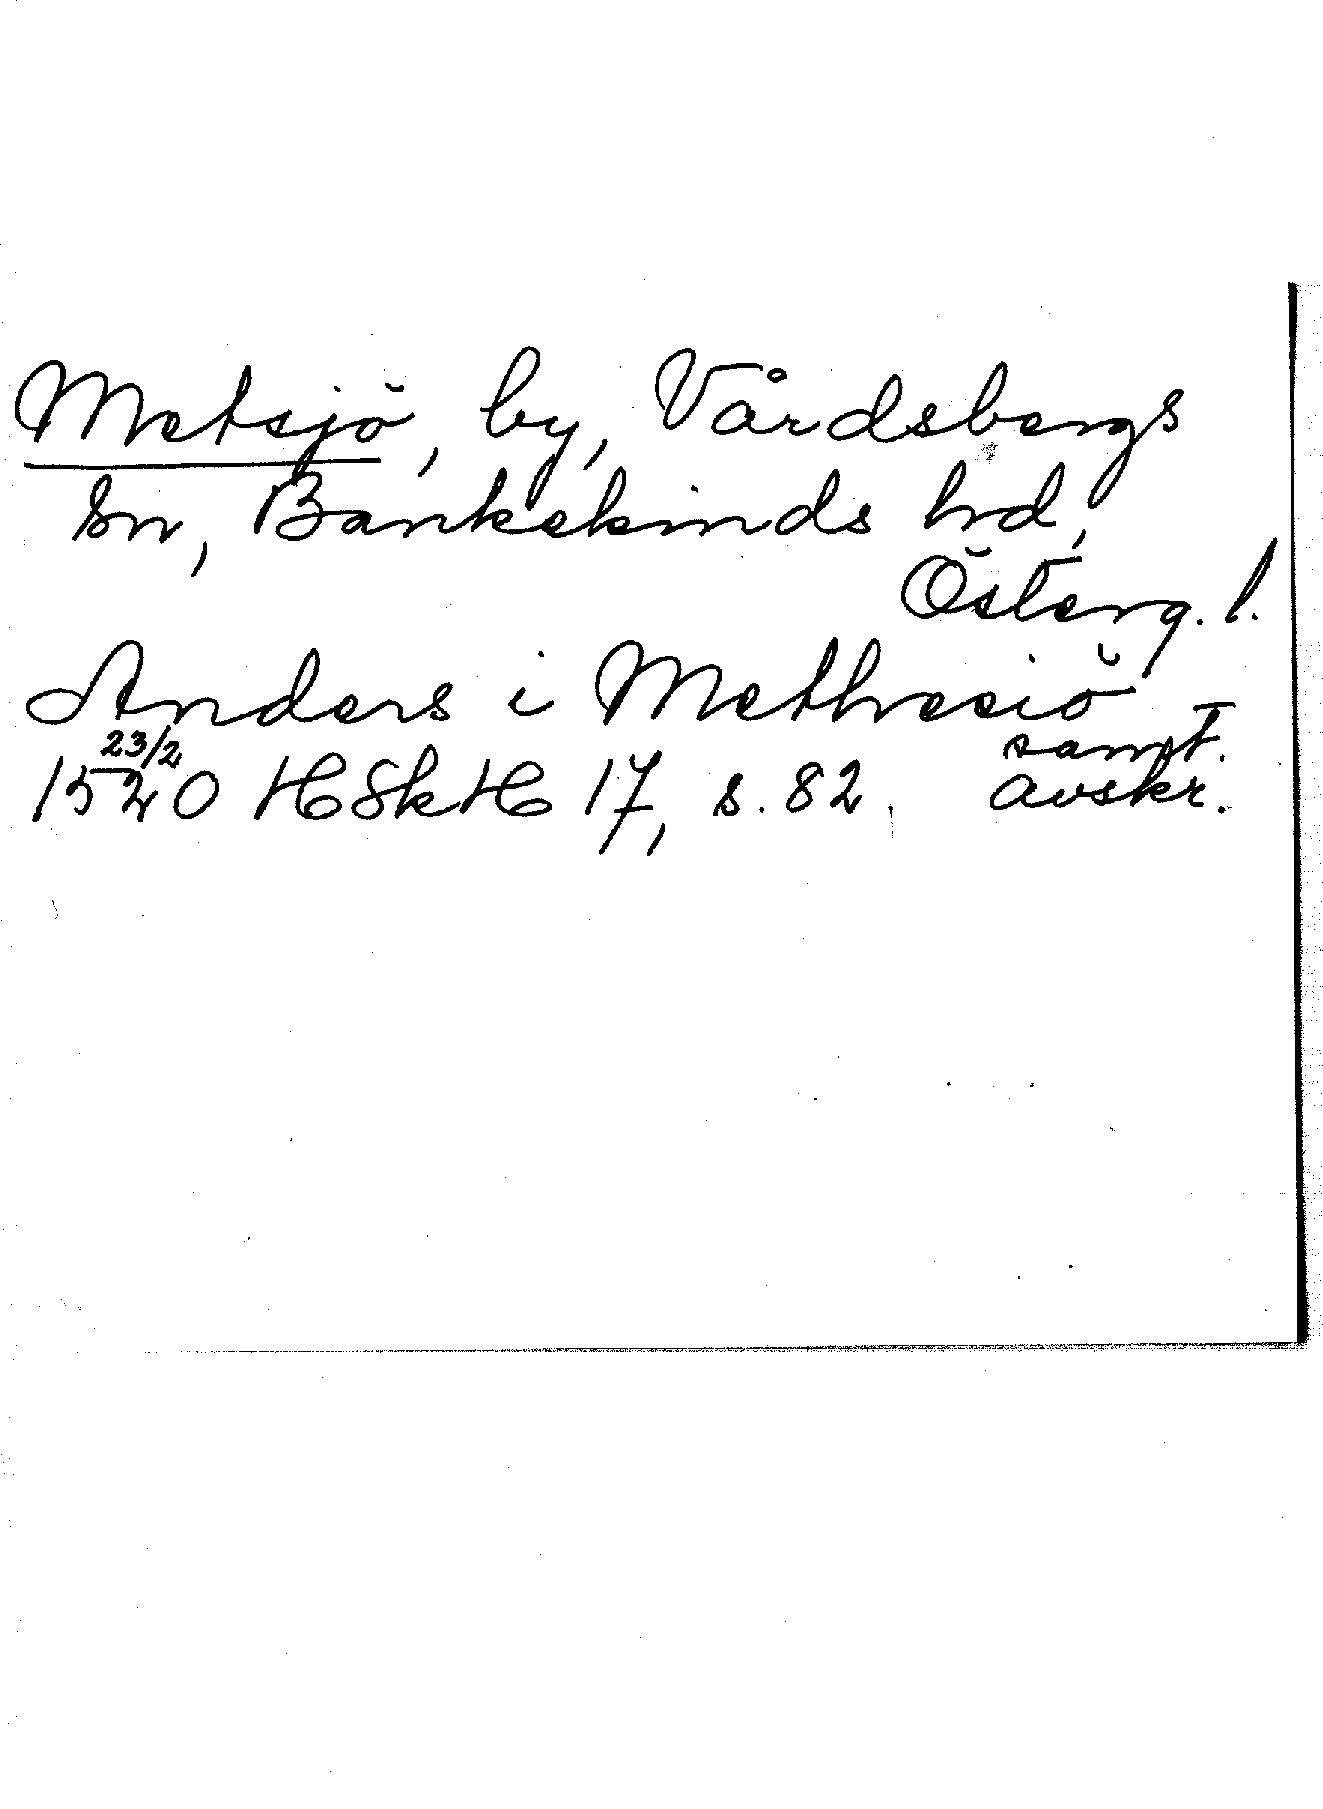 Metsjö, by, Vårdsbergs
sn, Bankekinds hrd,
Österg. l.
Anders i Methesiö –
23/2 samt.
1520 HSkH 17, s. 82. avskr.